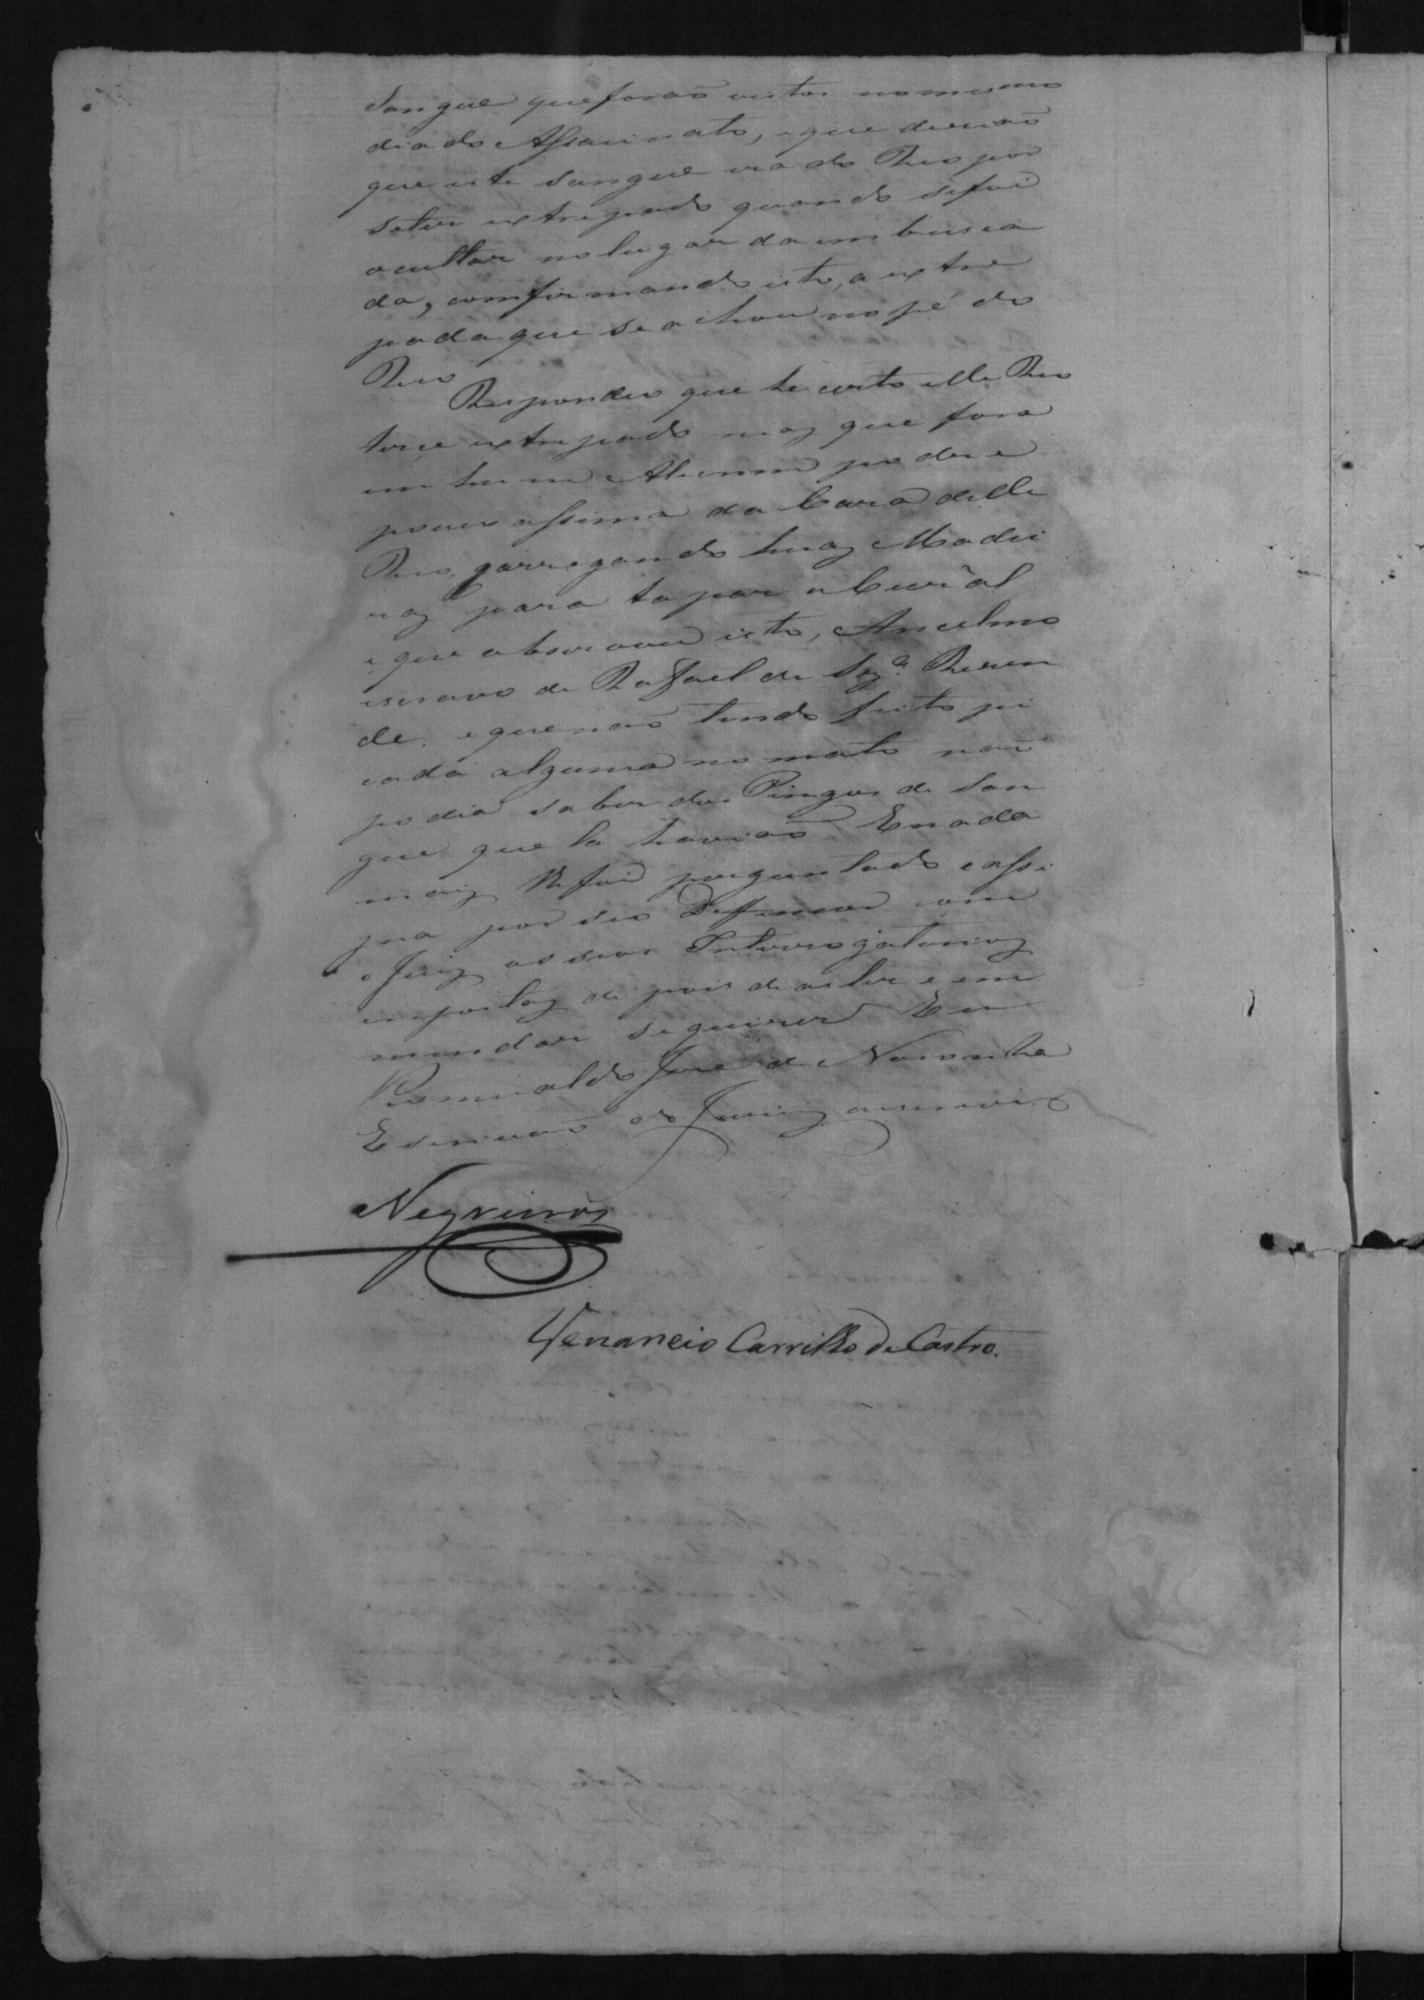 Sangue que forão vistos no mesmo
dia do Assacinato, e que diserão
que este sangue era do Reo por
seter extrepado quando sefoi
ocultar no lugar da embusca
da, comfirmando isto, a extre
pada que se achou no pé do
Reo
Respondeo que he certo elle Reo
terse extrepado mas que fora
em huma
pouco assima da Caza delle
Reo, carregando huas Madei
ras para tapar o Curral
e que observou isto, Ancelmo
escravo de Rafael de Sz.ª Rezen
de, e que não tendo feito pi
cada alguma no mato não
podia saber dos Pingos de San
gue que la havião Enada
mais lhe foi perguntado e assi
gna por seo Deffensor com
o Juiz os seos Interrogatorios
e repostas de pois de as ler e em
mendar se quizer Eu
Romualdo Jose de Noronha
Escrivão do Jury escrevi
Negreiros
Venancio Carrilho de Castro.